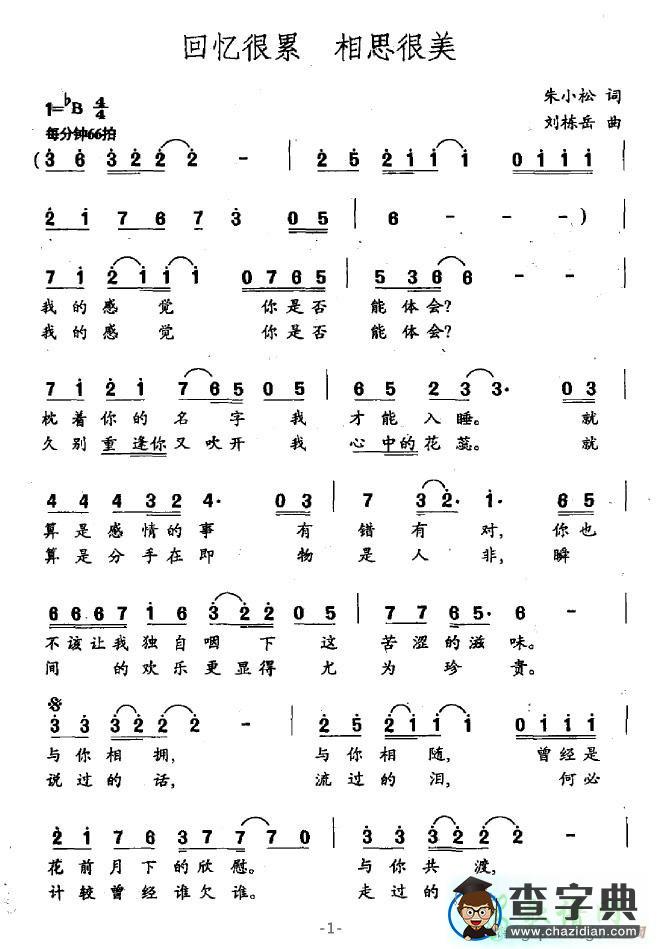 回忆很累 相思很美
1=♭B 4/4
朱小松 词
每分钟66拍
刘栋岳 曲
(3 6 3 2 2 2 - | 2 5 2 1 1 1 0 1 1 1 |
2 1 7 6 7 3 0 5 | 6 - - -)
7 1 2 1 1 1 0 7 6 5 | 5 3 6 6 - -
我的感觉 你是否 能体会?
我的感觉 你是否 能体会?
7 1 2 1 7 6 5 0 5 | 6 5 2 3 3· 0 3
枕着你的名字我 才能入睡。 就
久别重逢你又吹开我 心中的花蕊。 就
4 4 4 3 2 4· 0 3 | 7 3 2· 1· 6 5
算是感情的事 有 错有对,你也
算是分手在即 物 是人非,瞬
6 6 6 7 1 6 3 2 2 0 5 | 7 7 6 5· 5 -
不该让我独自咽下这 苦涩的滋味。
间的欢乐更显得尤 为珍贵。
3 3 3 2 2 2 - | 2 5 2 1 1 1 0 1 1 1
与你相拥, 与你相随, 曾经是
说过的话, 流过的泪, 何必
2 1 7 6 3 7 7 7 7 0 | 3 3 3 2 2 2 -
花前月下的欣慰。 与你共渡,
计较曾经谁欠谁。 走过的
查字典
www.chazidian.com
-1-